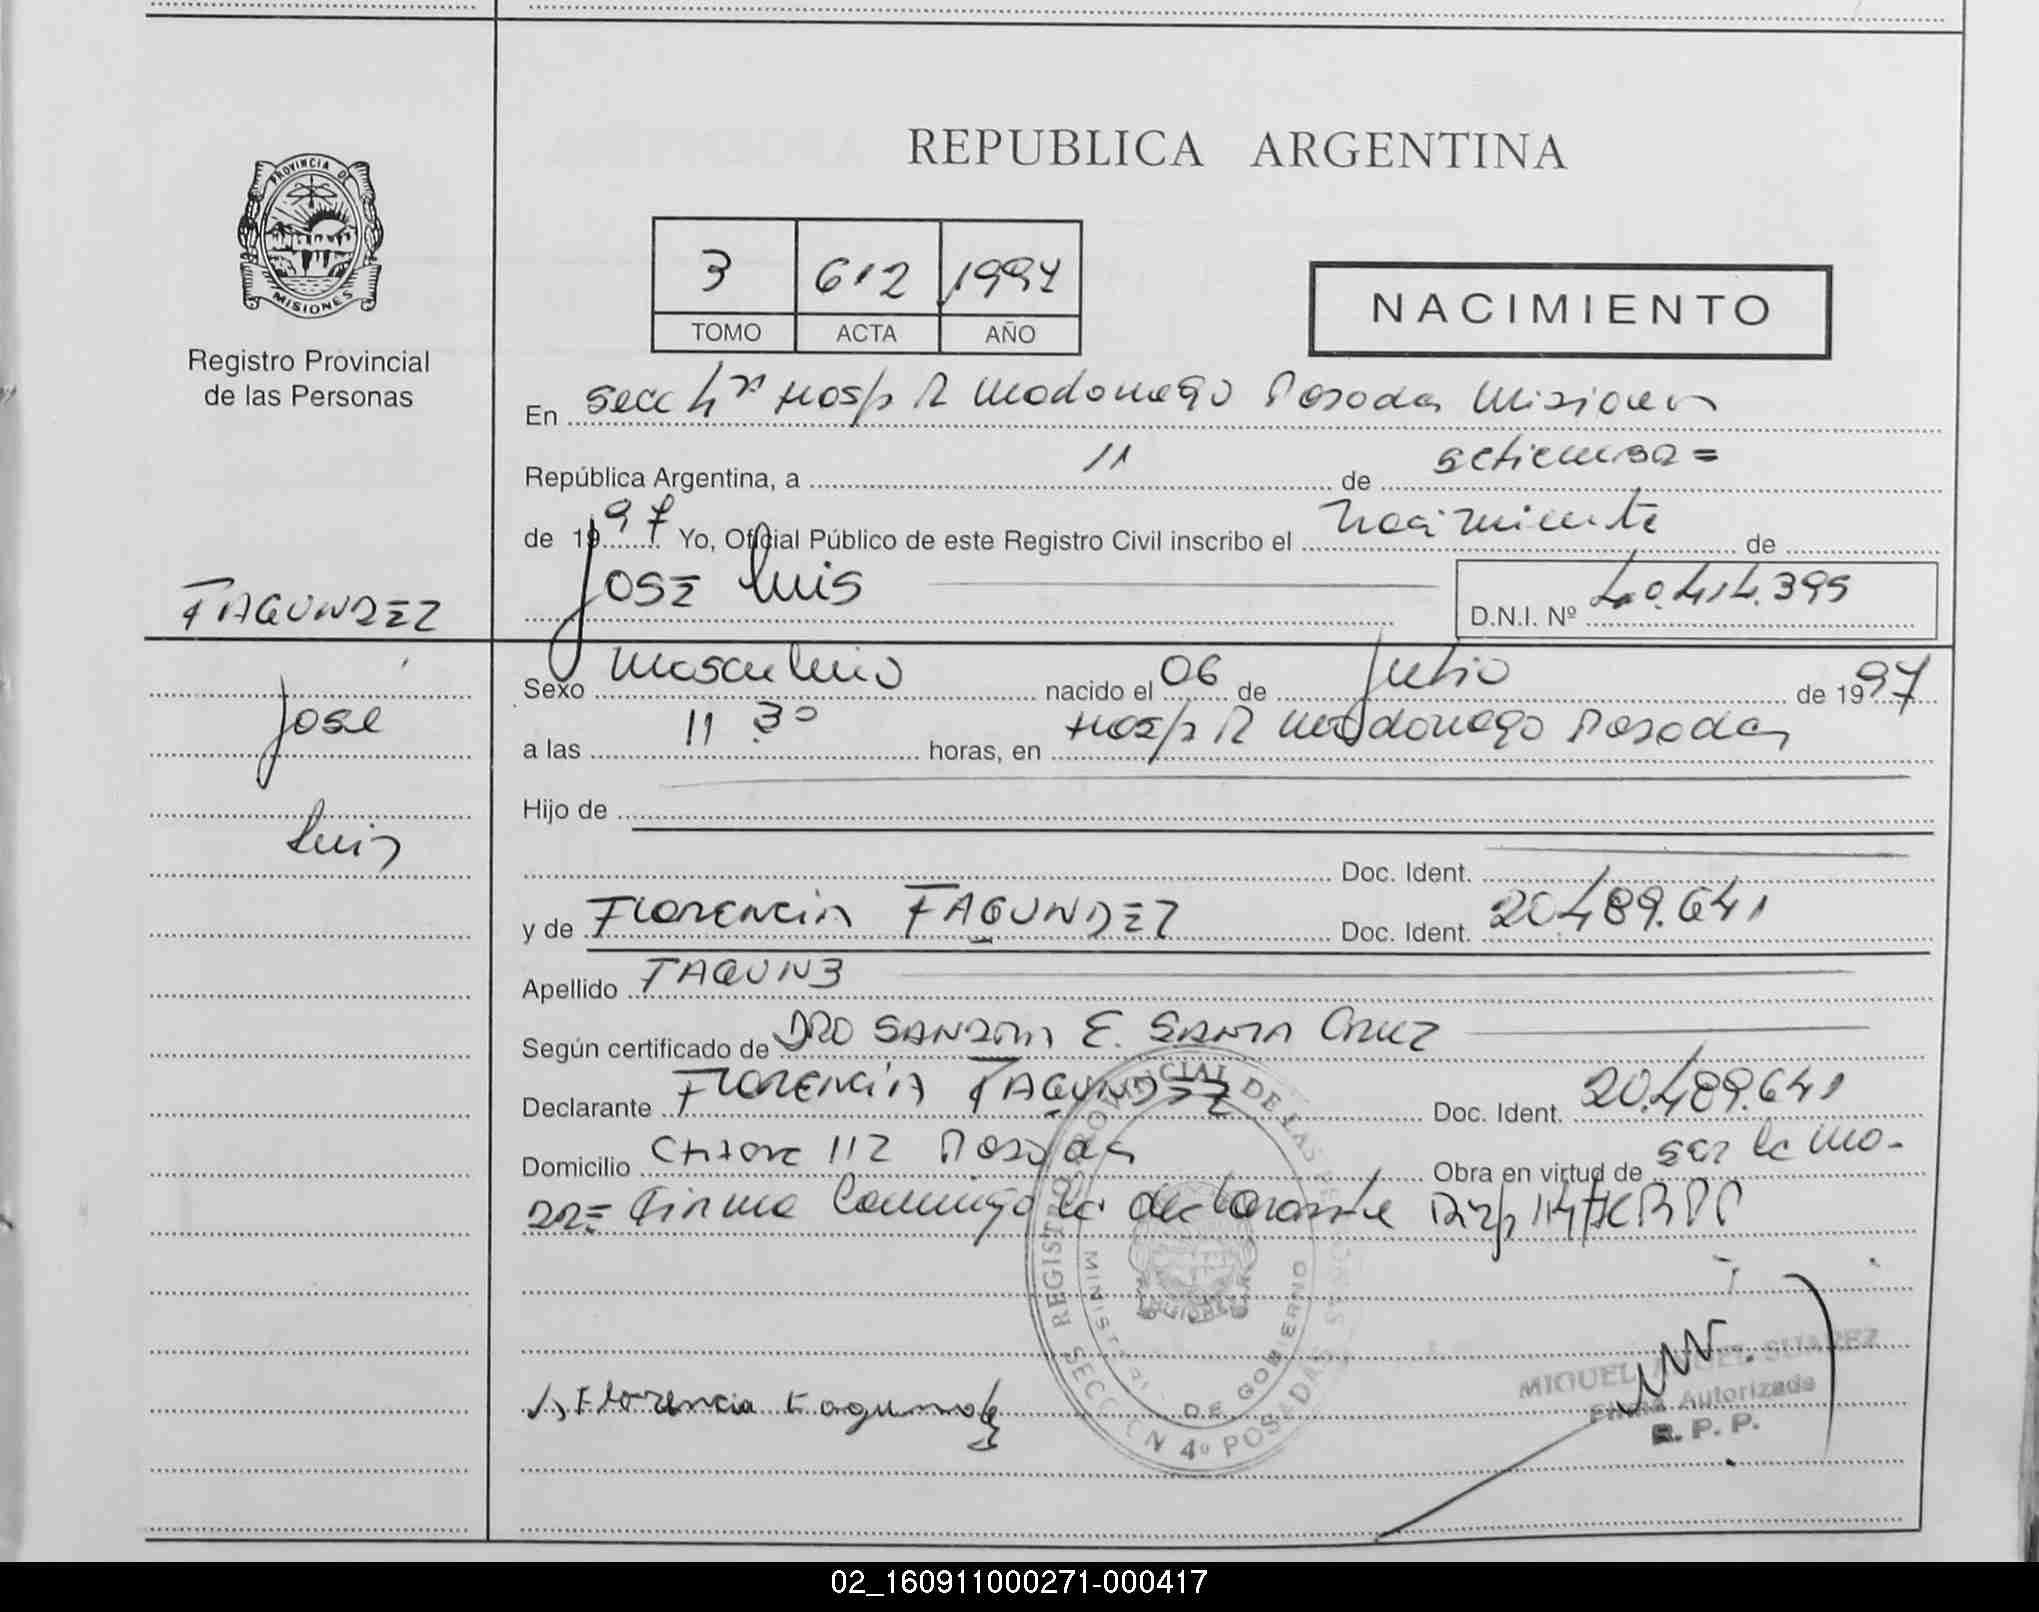 REPUBLICA ARGENTINA
PROVINCIA DE
MISIONES
Registro Provincial
de las Personas
3 612 1997
TOMO ACTA AÑO
NACIMIENTO
En Secc 4ta Hosp R Madariaga Posadas Misiones
República Argentina, a 11 de setiembre =
de 1997 Yo, Oficial Público de este Registro Civil inscribo el Nacimiento de
José Luis D.N.I. Nº 40.414.395
FAGUNDEZ
José
Luis
Sexo Masculino nacido el 06 de Julio de 1997
a las 11 30 horas, en Hosp R Madariaga Posadas
Hijo de
Doc. Ident.
y de FLORENCIA FAGUNDEZ Doc. Ident. 20.489.641
Apellido
Según certificado de SANDRA E. SANTA CRUZ
Declarante FLORENCIA FAGUNDEZ Doc. Ident. 20.489.641
Domicilio 112 Posadas Obra en virtud de ser la ma-
dre= Firma Conmigo la declarante
REGISTRO PROVINCIAL DE LAS PERSONAS
MINISTERIO DE GOBIERNO
MISIONES
SECCION 4º POSADAS
Florencia Fagundez
MIGUEL ANGEL SUAREZ
Firma Autorizada
R. P. P.
02_160911000271-000417